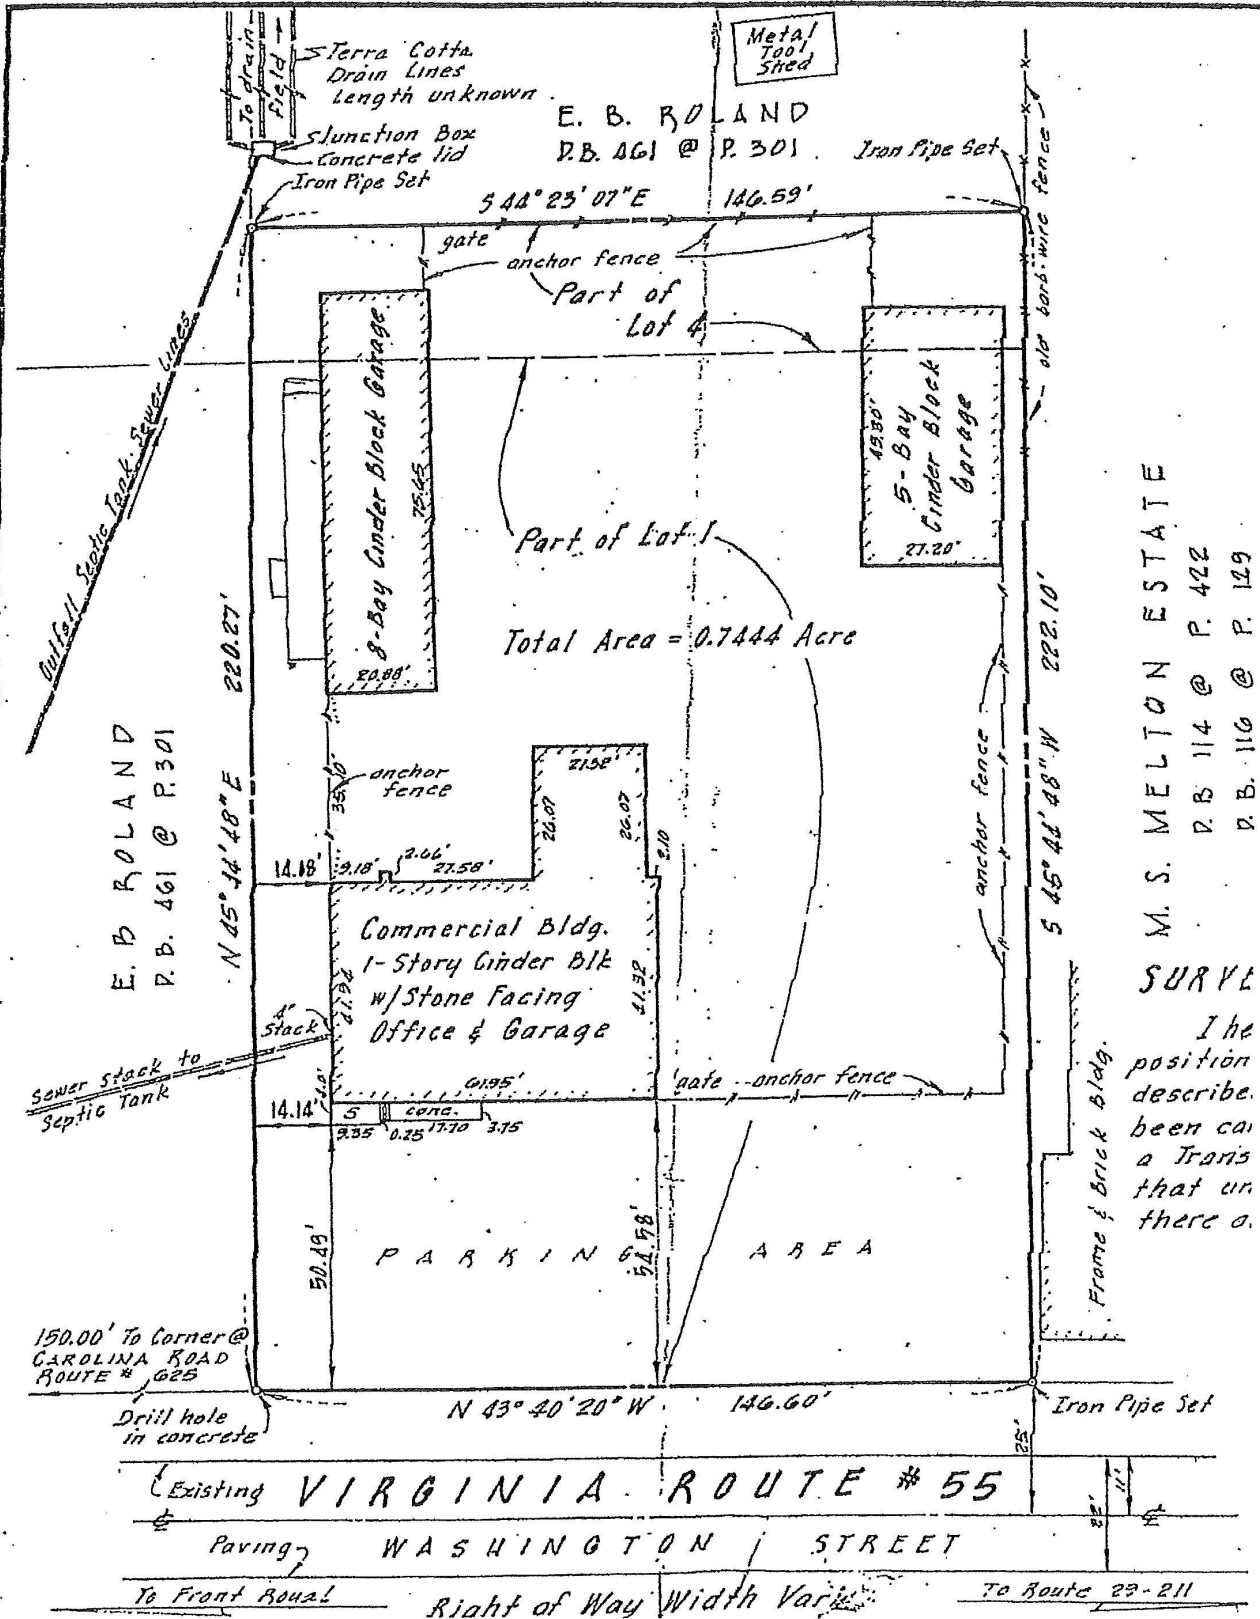 To drain
field
Terra Cotta
Drain Lines
Length unknown
Junction Box
Concrete lid
Iron Pipe Set
Metal
Tool
Shed
E. B. ROLAND
D.B. 461 @ P. 301
Iron Pipe Set
S 44° 23' 07" E 146.59'
gate
anchor fence
Part of
Lot 4
old barb-wire fence
Outfall Septic Tank Sewer Lines
8-Bay Cinder Block Garage
75.65
20.88'
5-Bay
Cinder Block
Garage
27.20'
Part of Lot 1
Total Area = 0.7444 Acre
220.27'
N 45° 44' 48" E
E. B ROLAND
D.B. 461 @ P. 301
222.10'
S 45° 44' 48" W
M. S. MELTON ESTATE
D.B 114 @ P. 422
D.B. 116 @ P. 129
anchor
fence
35.10'
anchor fence
21.52'
26.07
26.07
2.10
14.18'
9.18'
2.66'
27.58'
Commercial Bldg.
1-Story Cinder Blk
w/Stone Facing
Office & Garage
41.94
41.32
61.95'
4"
Stack
Sewer Stack to
Septic Tank
gate
anchor fence
14.14'
5
conc.
9.35
0.25
17.70
3.75
50.49'
54.58'
PARKING AREA
Frame & Brick Bldg.
SURVE
I he
position
describe
been ca
a Trans
that un
there a
150.00' To Corner @
CAROLINA ROAD
ROUTE # 625
Drill hole
in concrete
N 43° 40' 20" W 146.60'
Iron Pipe Set
25'
Existing
VIRGINIA ROUTE # 55
22'
11'
Paving
WASHINGTON STREET
To Front Royal
Right of Way Width
To Route 29-211